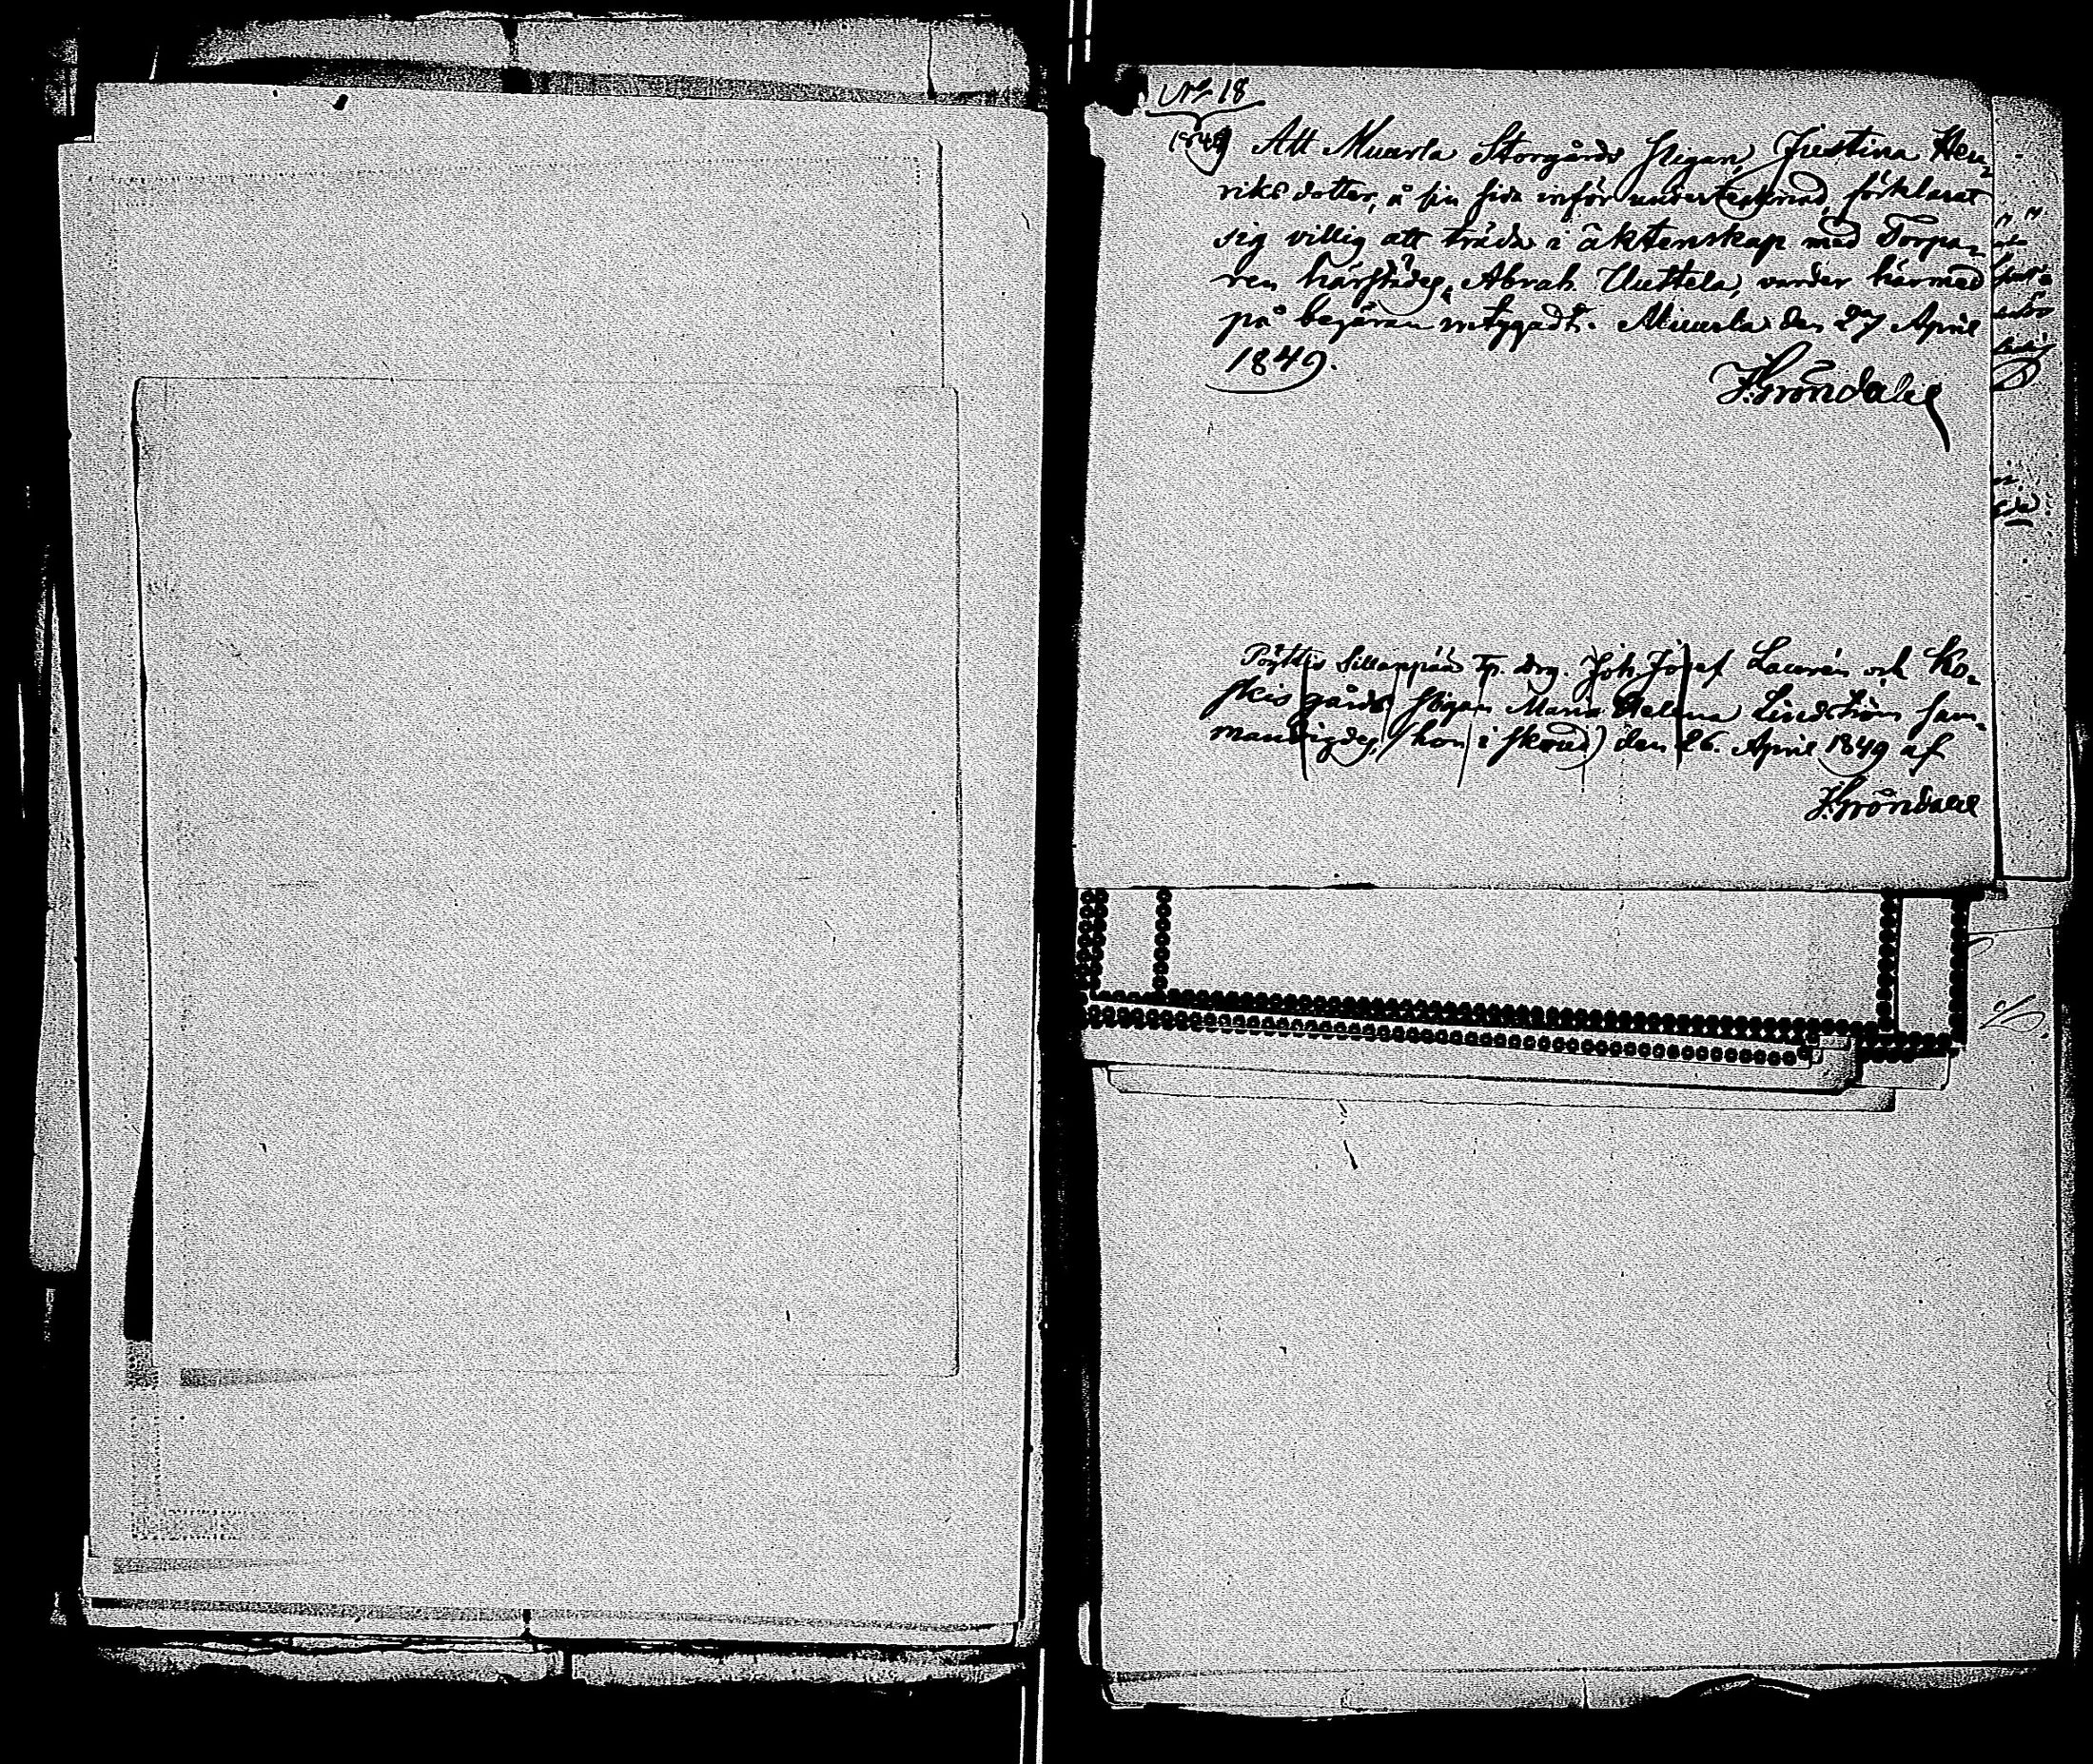 No 18
1849
Att Muurla Storgårds Pigan, Justina Hen-
riks dotter, å sin sida inför undertecknad, förklarat
sig villig att träda i äktenskap med Torpa-
ren härstädes, Abrah. Uuttela, varder härmed
på begäran intygadt. Muurla den 27 April
1849.
F. Gröndahl
Pöyttis Sillanpää Tp. drg. Joh. Josef Laurén och Ko-
skis gårds Pigan Maria Helena Lindström sam-
manvigdes, (hon i skrud) den 26. April 1849 af
F. Gröndahl